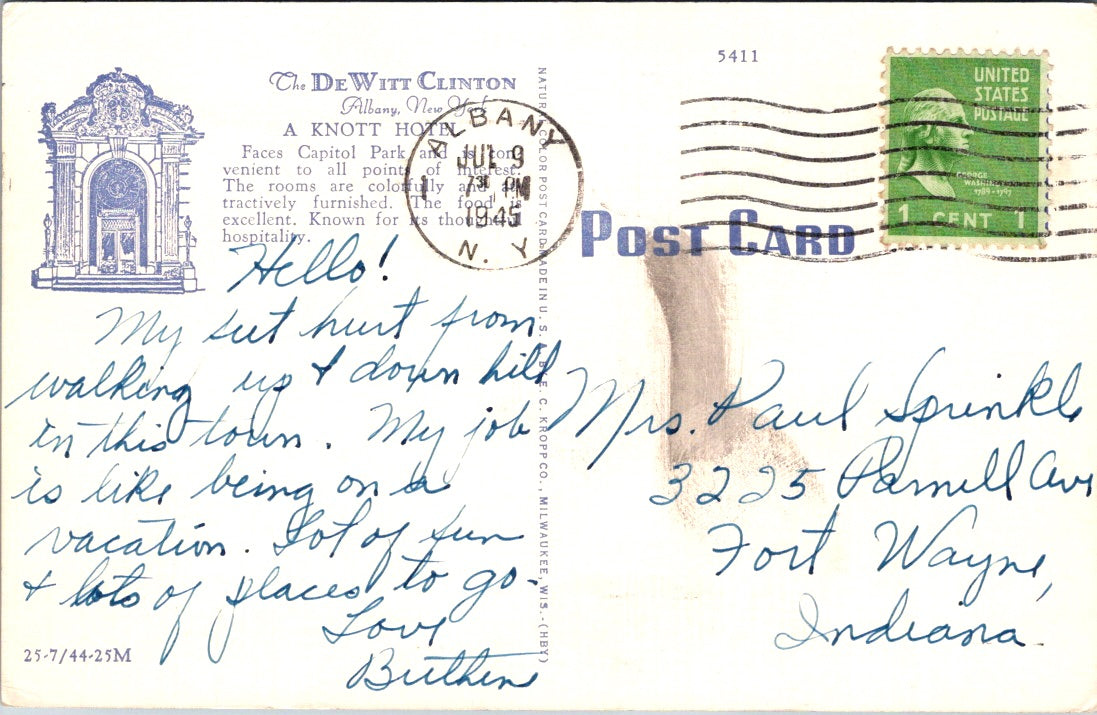 5411
UNITED
STATES
POSTAGE
GEORGE
WASHINGTON
1789-1797
1 CENT 1
The DeWitt Clinton
Albany, New York
A KNOTT HOTEL
Faces Capitol Park and is con
venient to all points of interest.
The rooms are colorfully and at
tractively furnished. The food is
excellent. Known for its thoughtful
hospitality.
ALBANY
JUL 9
730 PM
1945
N. Y.
POST CARD
Hello!
My feet hurt from
walking up & down hill
in this town. My job
is like being on a
vacation. Lot of fun
& lots of places to go.
Love
Mrs. Paul Sprinkle
3225 Parnell Ave
Fort Wayne,
Indiana.
25-7/44-25M
COLOR POST CARD MADE IN U. S. A. BY E. C. KROPP CO., MILWAUKEE, WIS.-(HBY)